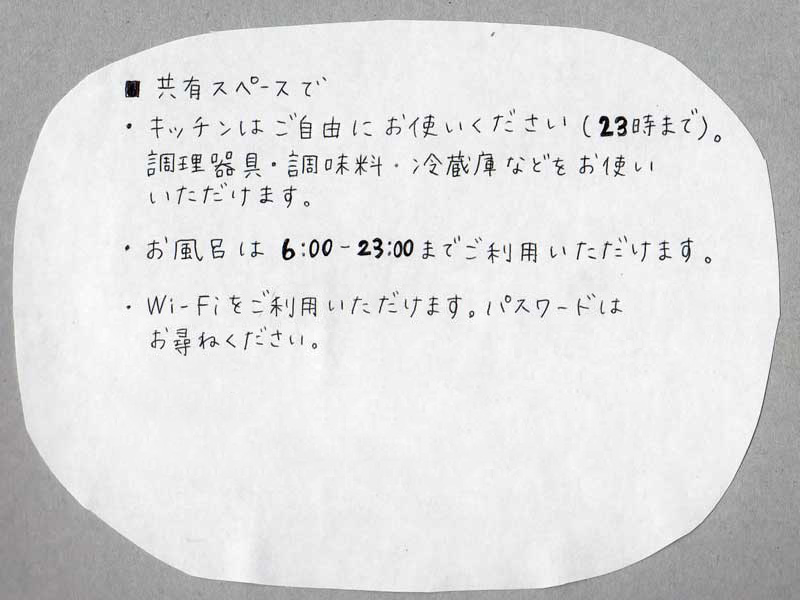 ■ 共有スペースで
・キッチンはご自由にお使いください(23時まで)。
調理器具・調味料・冷蔵庫などをお使い
いただけます。
・お風呂は 6:00-23:00までご利用いただけます。
・Wi-Fiをご利用いただけます。パスワードは
お尋ねください。